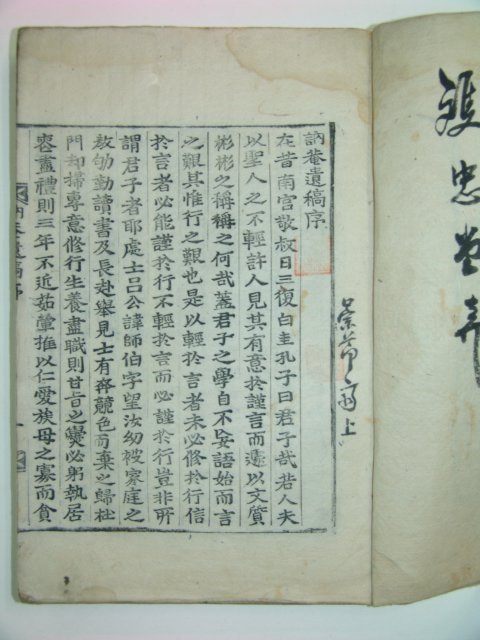 護忠堂弆
訥菴遺稿序
在昔南宮敬叔日三復白圭孔子曰君子哉若人夫
以聖人之不輕許人見其有意於謹言而遽以文質
彬彬之稱稱之何哉蓋君子之學自不妄語始而言
之艱其惟行之艱也是以輕於言者未必修於行信
於言者必能謹於行不輕於言而必謹於行豈非所
謂君子者耶處士呂公諱師伯字望汝幼被家庭之
敎劬勤讀書及長赴擧見士有奔競色而棄之歸杜
門却掃專意修行生養盡職則甘旨之爨必躬執居
喪盡禮則三年不近茹葷推以仁愛族母之寡而貧
訥菴遺稿序
一